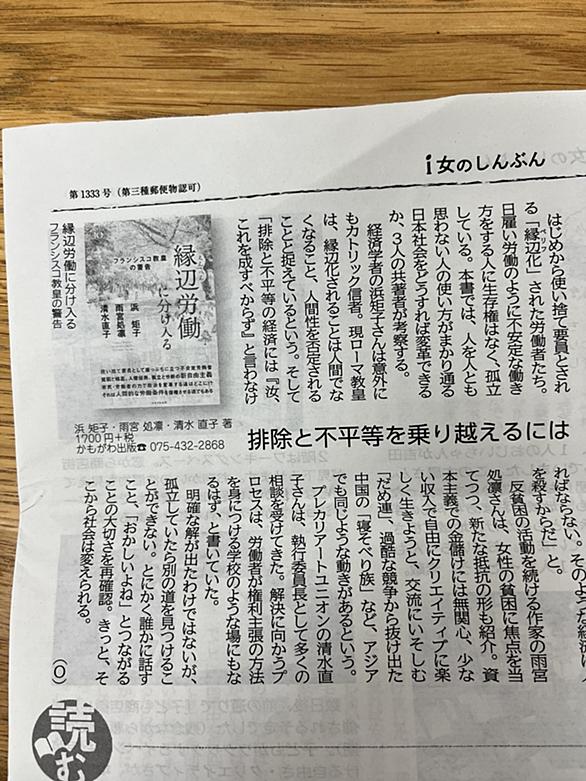 i女のしんぶん
第1333号（第三種郵便物認可）
はじめから使い捨て要員とされ
る「縁辺化」された労働者たち。
日雇い労働のように不安定な働き
方をする人に生存権はなく、孤立
している。本書では、人を人とも
思わない人の使い方がまかり通る
日本社会をどうすれば変革できる
か、3人の共著者が考察する。
経済学者の浜矩子さんは意外に
もカトリック信者。現ローマ教皇
は、縁辺化されることは人間でな
くなること、人間性を否定される
ことと捉えているという。そして
「排除と不平等の経済には『汝、
これを成すべからず』と言わなけ
フランシスコ教皇
の警告
縁辺労働
に分け入る
浜 矩子
雨宮処凛
清水直子
縁辺労働に分け入る
フランシスコ教皇の警告
浜 矩子・雨宮 処凛・清水 直子 著
1700円+税
かもがわ出版☎075-432-2868
排除と不平等を乗り越えるには
ればならない。そのような経済は人
を殺すからだ」と。
反貧困の活動を続ける作家の雨宮
処凛さんは、女性の貧困に焦点を当
てつつ、新たな抵抗の形も紹介。資
本主義での金儲けには無関心、少な
い収入で自由にクリエイティブに楽
しく生きようと、交流にいそしむ
「だめ連」、過酷な競争から抜け出た
中国の「寝そべり族」など、アジア
でも同じような動きがあるという。
プレカリアートユニオンの清水直
子さんは、執行委員長として多くの
相談を受けてきた。解決に向かうプ
ロセスは、労働者が権利主張の方法
を身につける学校のような場にもな
るはず、と書いていた。
明確な解が出たわけではないが、
孤立していたら別の道を見つけるこ
とができない。とにかく誰かに話す
こと、「おかしいよね」とつながる
ことの大切さを再確認。きっと、そ
こから社会は変えられる。
（O）
読む